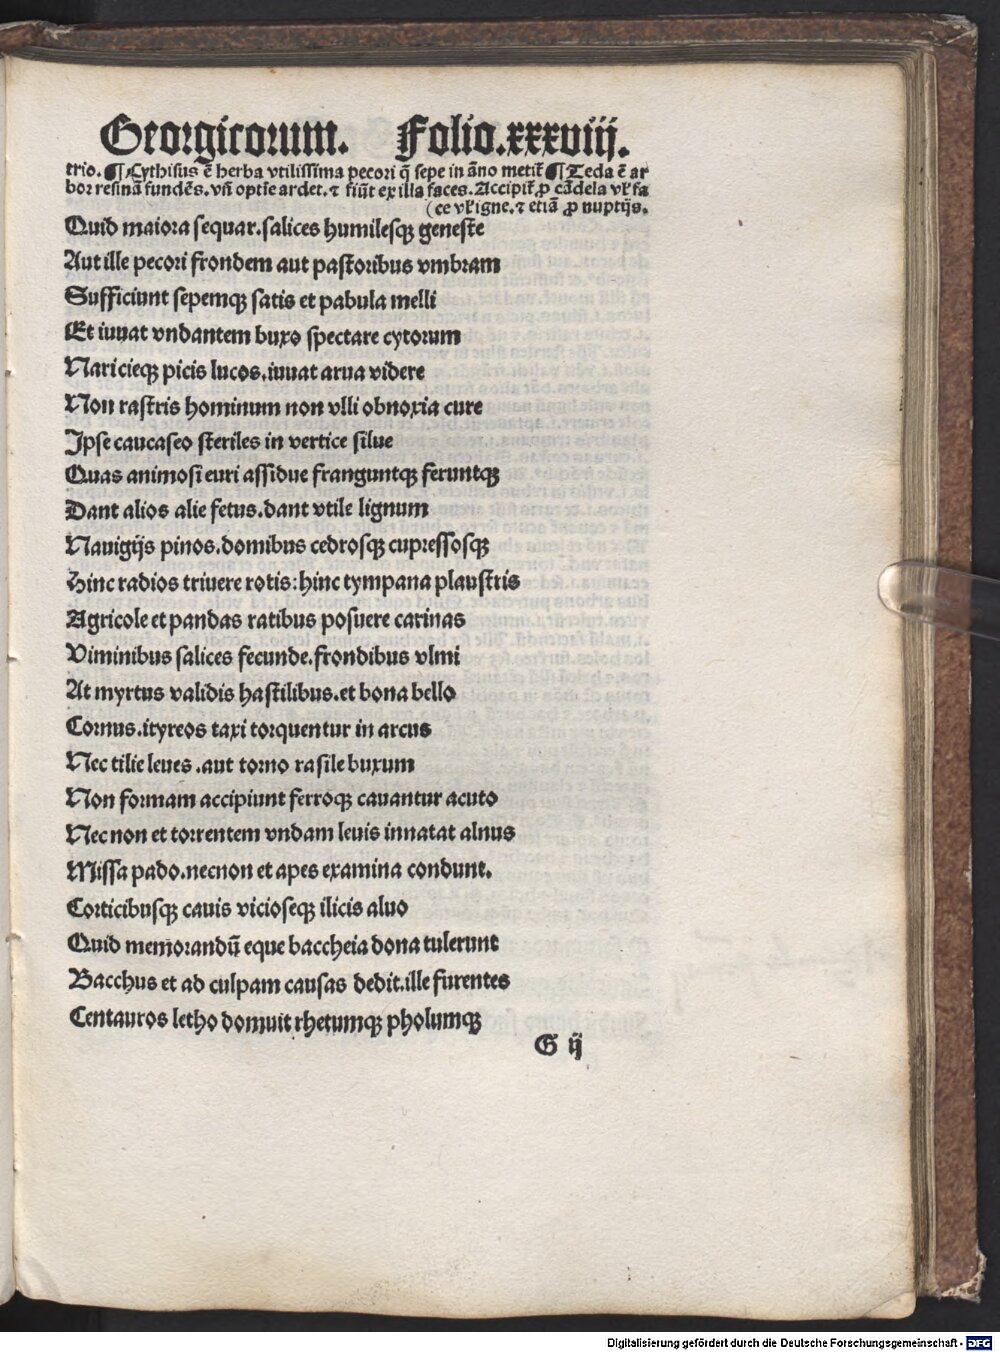 Georgicorum. Folio.xxxviij.
trio. ¶ Cythisus ē herba vtilissima pecori q̄ sepe in āno metit̄ ¶ Teda ē ar
bor resinā fundēs. vñ optīe ardet. ⁊ fiūt ex illa faces. Accipit̄ ꝓ cādela vl̓ fa
(ce vl̓ igne. ⁊ etiā ꝓ nuptijs.
Quid maiora sequar. salices humilesqꝫ geneste
Aut ille pecori frondem aut pastoribus vmbram
Sufficiunt sepemqꝫ satis et pabula melli
Et iuuat vndantem buxo spectare cytorum
Naricieqꝫ picis lucos. iuuat arua videre
Non rastris hominum non vlli obnoxia cure
Ipse caucaseo steriles in vertice silue
Quas animosi euri assidue franguntqꝫ feruntqꝫ
Dant alios alie fetus. dant vtile lignum
Nauigijs pinos. domibus cedrosqꝫ cupressosqꝫ
Hinc radios triuere rotis: hinc tympana plaustris
Agricole et pandas ratibus posuere carinas
Viminibus salices fecunde. frondibus vlmi
At myrtus validis hastilibus. et bona bello
Cornus. ityreos taxi torquentur in arcus
Nec tilie leues . aut torno rasile buxum
Non formam accipiunt ferroqꝫ cauantur acuto
Nec non et torrentem vndam leuis innatat alnus
Missa pado. necnon et apes examina condunt.
Corticibusqꝫ cauis vicioseqꝫ ilicis aluo
Quid memorandū eque baccheia dona tulerunt
Bacchus et ad culpam causas dedit. ille furentes
Centauros letho domuit rhetumqꝫ pholumqꝫ
G ij
Digitalisierung gefördert durch die Deutsche Forschungsgemeinschaft - DFG